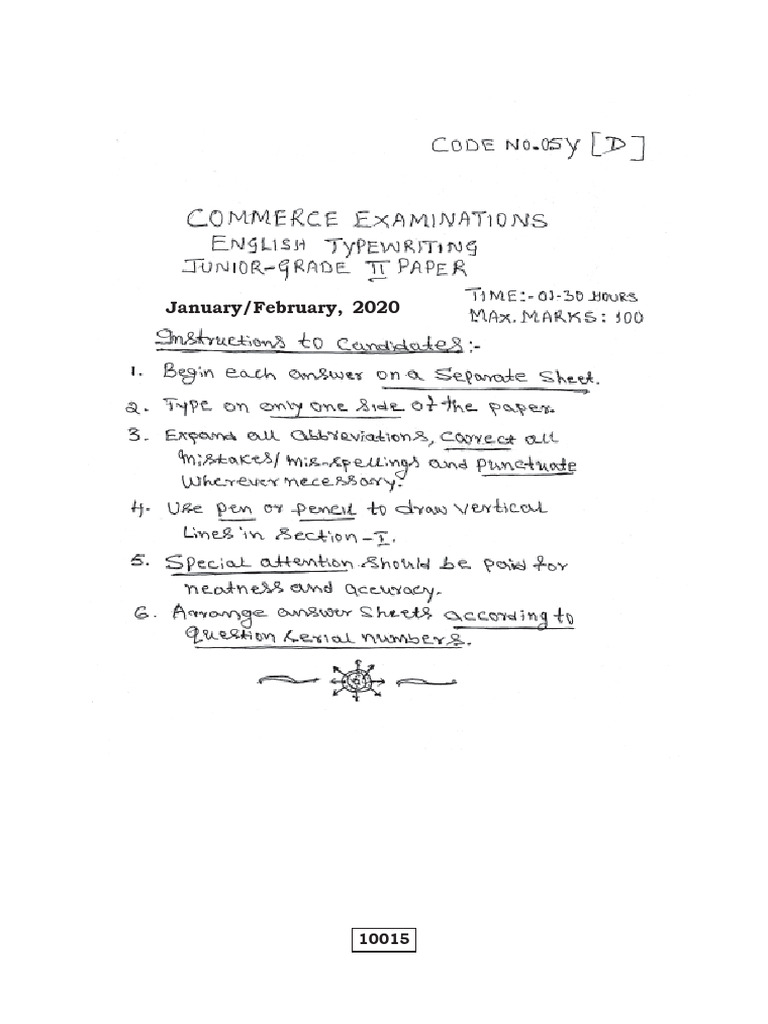 CODE NO.-05Y [D]
COMMERCE EXAMINATIONS
ENGLISH TYPEWRITING
JUNIOR-GRADE II PAPER
January/February, 2020
TIME:-01-30 HOURS
MAX. MARKS: 100
Instructions to Candidates:-
1. Begin each answer on a Separate Sheet.
2. Type on only one side of the paper.
3. Expand all abbreviations, correct all
Mistakes/mis-spellings and punctuate
Wherever necessary.
4. Use pen or pencil to draw vertical
Lines in Section-I.
5. Special attention should be paid for
neatness and accuracy.
6. Arrange answer sheets according to
question serial numbers.
10015